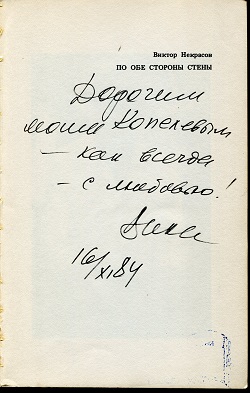 Виктор Некрасов
ПО ОБЕ СТОРОНЫ СТЕНЫ
Дорогим
моим Копелевым
— как всегда
— с любовью!
Вика
16/XI 84